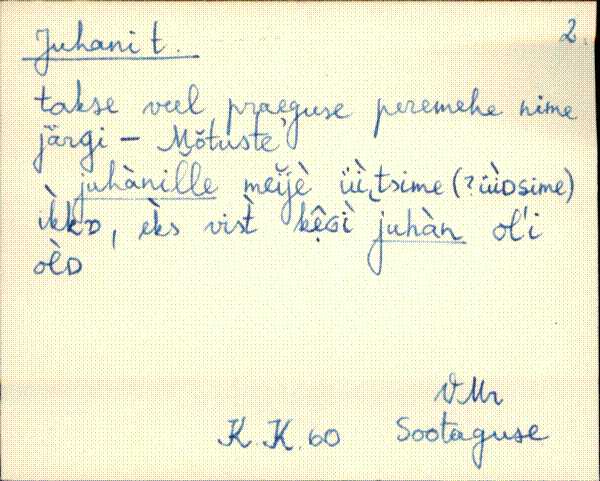 Juhani t. 2.
takse veel praeguse peremehe nime
järgi – Mõtuste
juhànille meijè üìtsime (? üüDsime)
ìkkD, èks vist kêGì juhàn ol'i
òlD
VMr
K.K. 60 Sootaguse